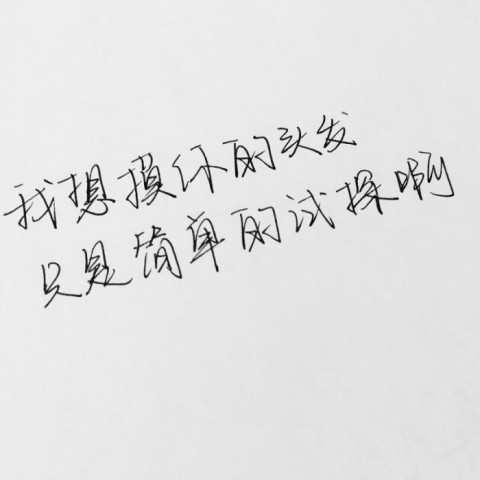 我想摸你的头发
只是简单的试探啊